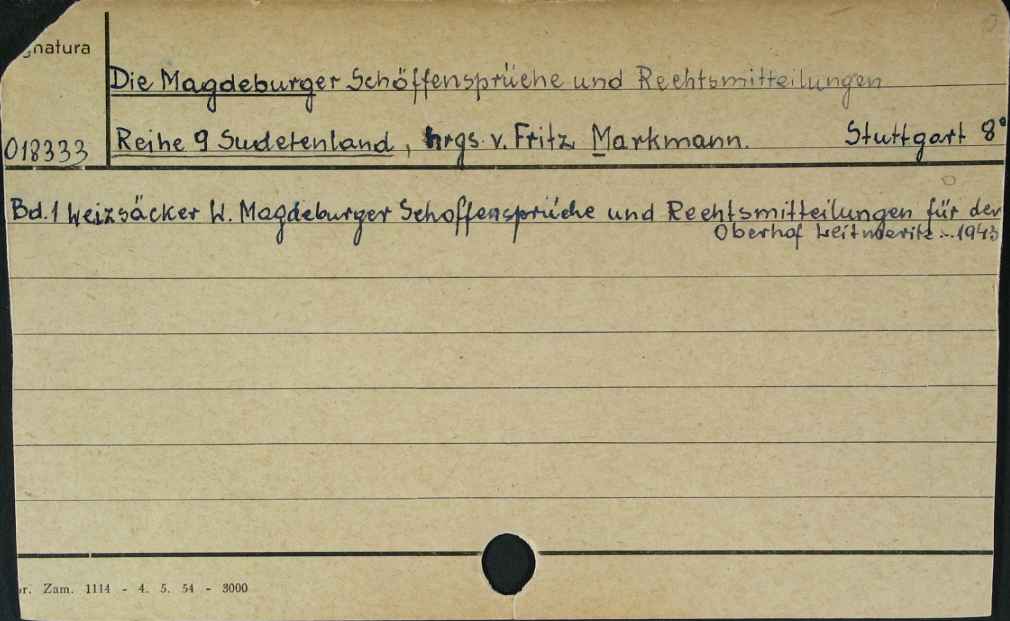 gnatura
Die Magdeburger Schöffensprüche und Rechtsmitteilungen
018333 Reihe 9 Sudetenland, hrgs. v. Fritz Markmann. Stuttgart 8°
Bd. 1 Weizsäcker W. Magdeburger Schoffensprüche und Rechtsmitteilungen für der
Oberhof Leitmeritz.. 1943
r. Zam. 1114 - 4. 5. 54 - 3000